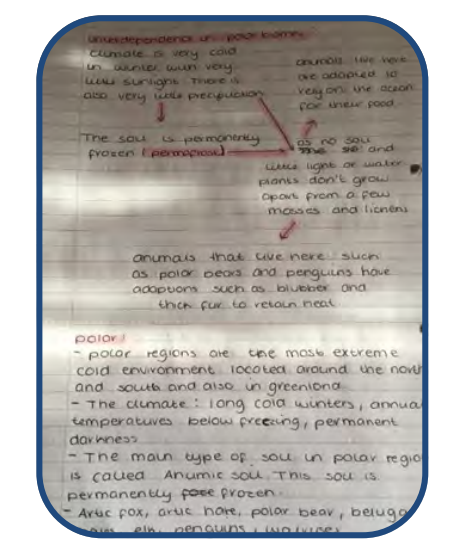 interdependence in polar biomes
climate is very cold
in winter with very
little sunlight. There is
also very little precipitation
animals live here
are adapted to
rely on the ocean
for their food
The soil is permanently
frozen (permafrost)
as no soil
and
little light or water
plants don't grow
apart from a few
mosses and lichens
animals that live here such
as polar bears and penguins have
adaptions such as blubber and
thick fur to retain heat
polar:
- polar regions are the most extreme
cold environment located around the north
and south and also in greenland
- The climate: long cold winters, annual
temperatures below freezing, permanent
darkness
- The main type of soil in polar regio
is called Anumic soil. This soil is
permanently frozen.
- Artic fox, artic hare, polar bear, beluga
elk, penguins, walrices